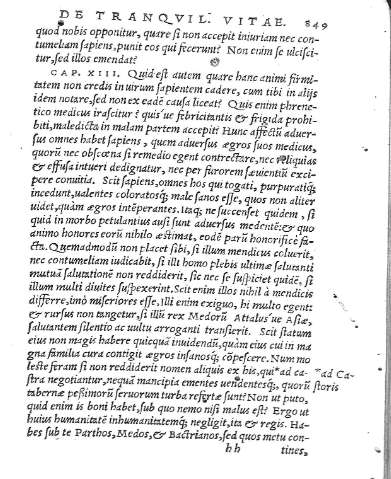 DE TRANQVIL. VITAE. 849
quod nobis opponitur, quare si non accepit iniuriam nec con-
tumeliam sapiens, punit eos qui fecerunt? Non enim se ulcisci-
tur, sed illos emendat?
CAP. XIII. Quid est autem quare hanc animi firmi-
tatem non credis in uirum sapientem cadere, cum tibi in alijs
idem notare, sed non ex eadē causa liceat? Quis enim phrene-
tico medicus irascitur? quis ue febricitantis & frigida prohi-
biti, maledicta in malam partem accepit? Hunc affectū aduer-
sus omnes habet sapiens, quem aduersus ægros suos medicus,
quorū nec obscœna si remedio egent contrectare, nec reliquias
& effusa intueri dedignatur, nec per furorem sæuientiū exci-
pere conuitia. Scit sapiens, omnes hos qui togati, purpuratiq;
incedunt, ualentes coloratosq; male sanos esse, quos non aliter
uidet, quàm ægros intēperantes. Itaq; ne succenset quidem, si
quid in morbo petulantius ausi sunt aduersus medentē: & quo
animo honores eorū nihilo æstimat, eodē parū honorificè fa-
cta. Quemadmodū non placet sibi, si illum mendicus coluerit,
nec contumeliam iudicabit, si illi homo plebis ultimæ salutanti
mutuā salutationē non reddiderit, sic nec se suspiciet quidē, si
illum multi diuites suspexerint. Scit enim illos nihil à mendicis
differre, imò miseriores esse. Illi enim exiguo, hi multo egent:
& rursus non tangetur, si illū rex Medorū Attalus ue Asiæ,
salutantem silentio ac uultu arroganti transierit. Scit statum
eius non magis habere quicquā inuidendū, quàm eius cui in ma
gna familia cura contigit ægros insanosq; cōpescere. Num mo
lestè feram si non reddiderit nomen aliquis ex his, qui *ad ca- *ad Ca-
stra negotiantur, nequā mancipia ementes uendentesq;, quorū storis
tabernæ peßimorū seruorum turba refertæ sunt? Non ut puto,
quid enim is boni habet, sub quo nemo nisi malus est? Ergo ut
huius humanitatē inhumanitatemq; negligit, ita & regis. Ha-
bes sub te Parthos, Medos, & Bactrianos, sed quos metu con-
h h tines,